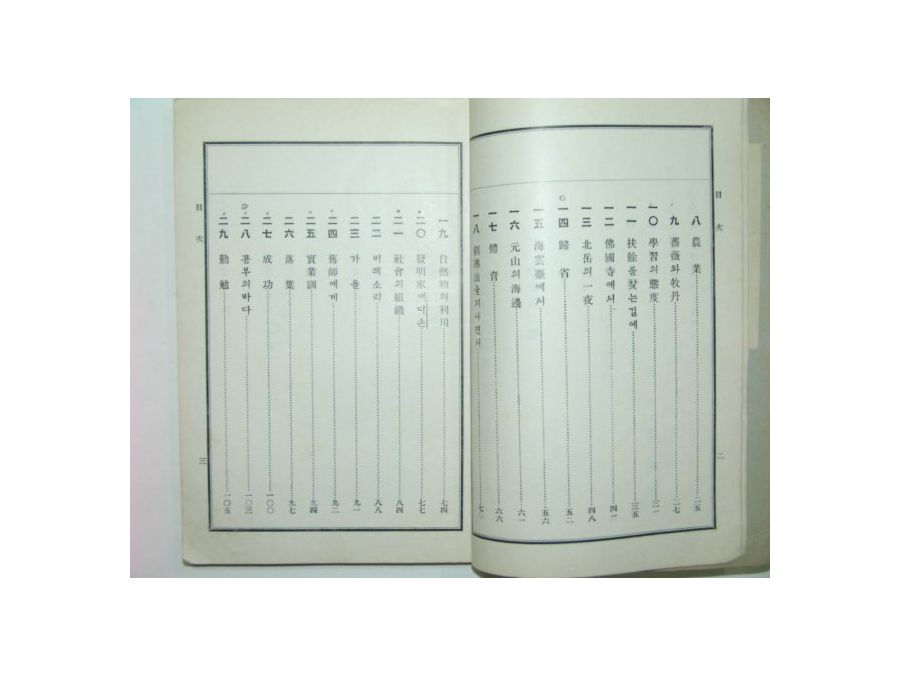 目次
八 農業 二五
九 薔薇와牧丹 二七
一〇 學習의態度 三一
一一 扶餘를찾는길에 三五
一二 佛國寺에서 四一
一三 北岳의一夜 四八
一四 歸省 五二
一五 海雲臺에서 五六
一六 元山의海邊 六一
一七 體育 六六
一八
二
目次
一九 自然物의利用 七四
二〇 發明家에디손 七七
二一 社會의組織 八四
二二 버레소리 八八
二三 가을 九一
二四 舊師에게 九二
二五 實業訓 九四
二六 落葉 九七
二七 成功 一〇〇
二八 공부의바다 一〇三
二九 勤勉 一〇五
三